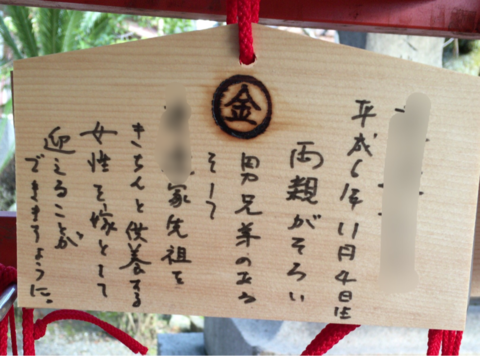 金
平成6年11月4日生
両親がそろい
男兄弟のある
そして
家先祖を
きちんと供養する
女性を嫁として
迎えることが
できますように。